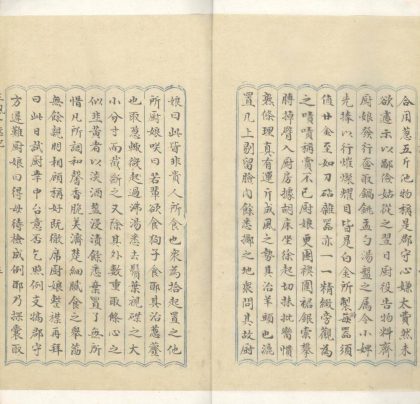 合用蔥五斤他物稱是郡守心嫌太費然未
欲遽示以鄙儉姑從之翌日厨役告物料齊
厨娘發行奩取鍋銚盂勺湯盤之屬令小婢
先捧以行燦爛耀目皆是白金所製每器須
值廿金至如刀砧雜器亦一一精緻旁觀為
之嘖嘖稱賞不已厨娘更圍襖圍裙銀索攀
膊掉臂入厨房據胡床坐徐起切抹批臠慣
熟條理真有運斤成風之勢其治羊頭也漉
置几上剔留臉肉餘悉擲之地衆問其故厨
娘曰此皆非貴人所食也衆為拾起置之他
所厨娘笑曰若輩欲食狗子食耶其治蔥虀
也取蔥輙微過沸湯悉去鬚葉視楪之大
小分寸而截斷之又除其外數重取條心之
似韭黃者以淡酒醯浸漬餘悉棄置了無所
惜凡所調和馨香脆美濟楚細膩食之舉箸
無餘親朋相顧稱好既徹席厨娘整襟再拜
曰此日試厨幸中台意否乞照例支犒郡守
方遲難厨娘曰得毋待檢成例耶乃探囊取